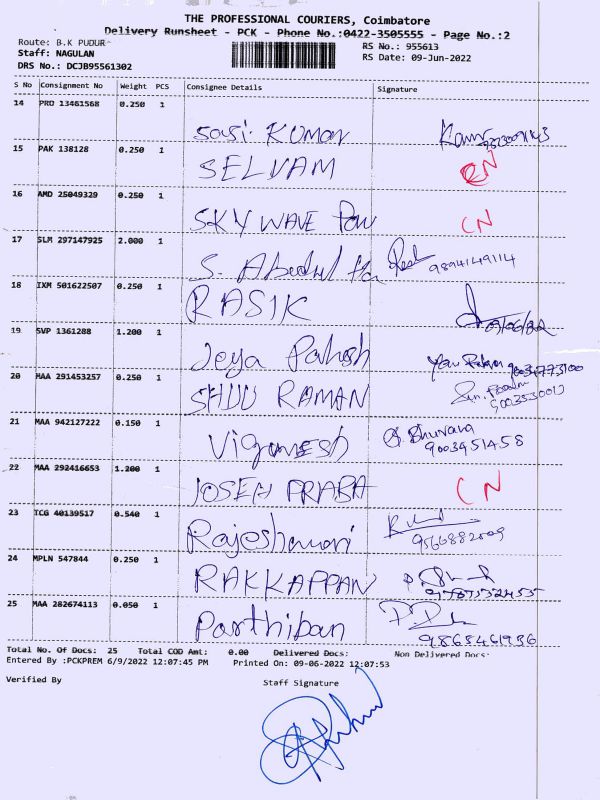 THE PROFESSIONAL COURIERS, Coimbatore
Delivery Runsheet - PCK - Phone No.:0422-3505555 - Page No.:2
Route: B.K PUDUR
RS No.: 955613
Staff: NAGULAN
RS Date: 09-Jun-2022
DRS No.: DCJB95561302
S No Consignment No Weight PCS Consignee Details Signature
14 PRO 13461568 0.250 1 Sasi Kumar
15 PAK 138128 0.250 1 SELVAM CN
16 AMD 25049329 0.250 1 SKY WAVE CN
17 SLM 297147925 2.000 1 S. Abedul 98941491114
18 IXM 501622507 0.250 1 RASIK 09/06/22
19 SVP 1361288 1.200 1 Jeya
20 MAA 291453257 0.250 1 RAMAN
21 MAA 942127222 0.150 1 Vignesh Bhuvana 9003951458
22 MAA 292416653 1.200 1 JOSEH PRABA CN
23 TCG 40139517 0.540 1 Rajeshwari
24 MPLN 547844 0.250 1 RAKKAPPAN
25 MAA 282674113 0.050 1 Parthiban
Total No. Of Docs: 25 Total COD Amt: 0.00 Delivered Docs: Non Delivered Docs:
Entered By :PCKPREM 6/9/2022 12:07:45 PM Printed On: 09-06-2022 12:07:53
Verified By Staff Signature